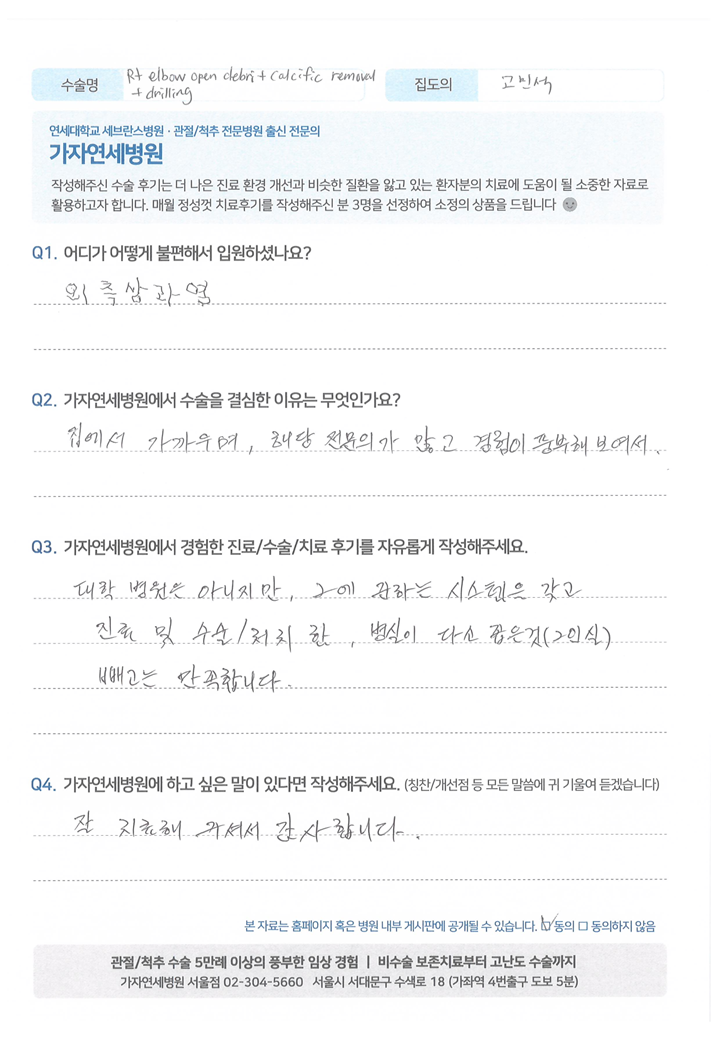 수술명
Rt elbow open debri + calcific removal
+ drilling
집도의
고민석
연세대학교 세브란스병원 · 관절/척추 전문병원 출신 전문의
가자연세병원
작성해주신 수술 후기는 더 나은 진료 환경 개선과 비슷한 질환을 앓고 있는 환자분의 치료에 도움이 될 소중한 자료로
활용하고자 합니다. 매월 정성껏 치료후기를 작성해주신 분 3명을 선정하여 소정의 상품을 드립니다
Q1. 어디가 어떻게 불편해서 입원하셨나요?
외측상과염
Q2. 가자연세병원에서 수술을 결심한 이유는 무엇인가요?
집에서 가까우며, 해당 전문의가 많고 경험이 풍부해 보여서.
Q3. 가자연세병원에서 경험한 진료/수술/치료 후기를 자유롭게 작성해주세요.
대학 병원은 아니지만, 그에 준하는 시스템을 갖고
진료 및 수술/처치 함, 병실이 다소 좁은것(2인실)
빼고는 만족합니다.
Q4. 가자연세병원에 하고 싶은 말이 있다면 작성해주세요. (칭찬/개선점 등 모든 말씀에 귀 기울여 듣겠습니다)
잘 치료해 주셔서 감사합니다.
본 자료는 홈페이지 혹은 병원 내부 게시판에 공개될 수 있습니다. ☑ 동의 □ 동의하지 않음
관절/척추 수술 5만례 이상의 풍부한 임상 경험 | 비수술 보존치료부터 고난도 수술까지
가자연세병원 서울점 02-304-5660 서울시 서대문구 수색로 18 (가좌역 4번출구 도보 5분)